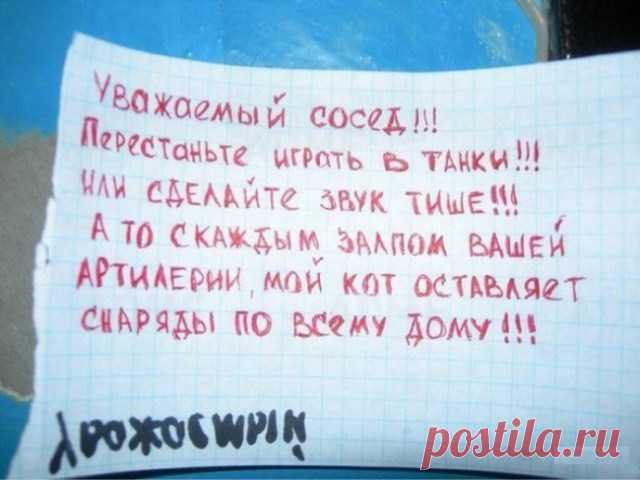 Уважаемый сосед!!!
Перестаньте играть в танки!!!
или сделайте звук тише!!!
А то скаждым залпом вашей
артилерии, мой кот оставляет
снаряды по всему дому!!!
postila.ru